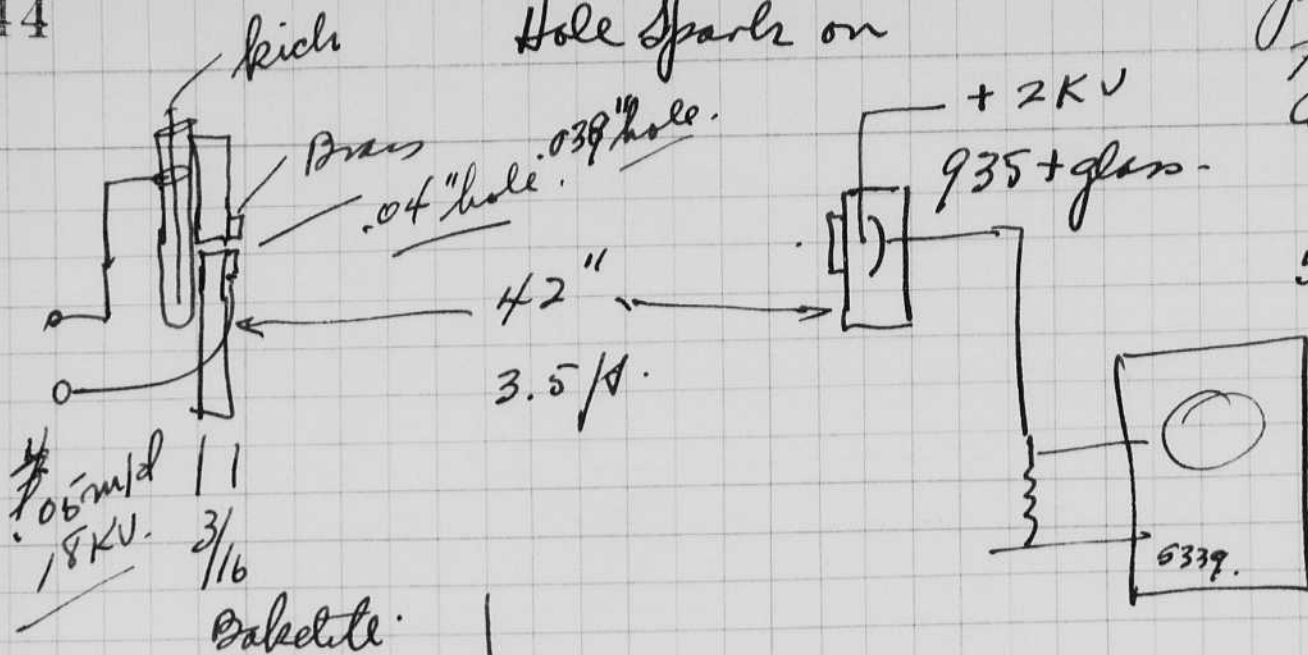 44
Hole Spark on
kick
Brass
.04" hole.
.039" hole.
+ 2KV
935 + glass.
42"
3.5 ft.
.05 mfd
18KV.
3/16
Bakelite.
5339.